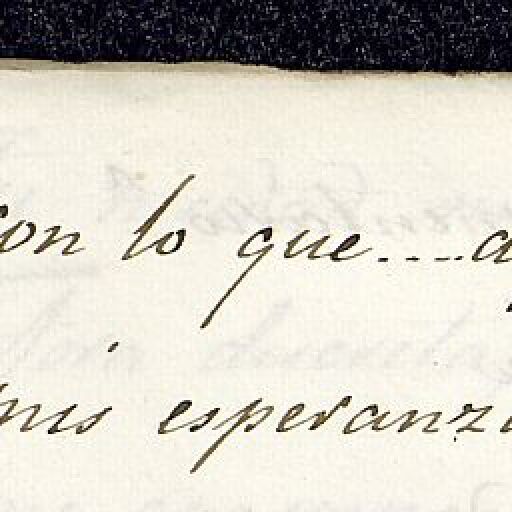 con lo que....a
mis esperanza